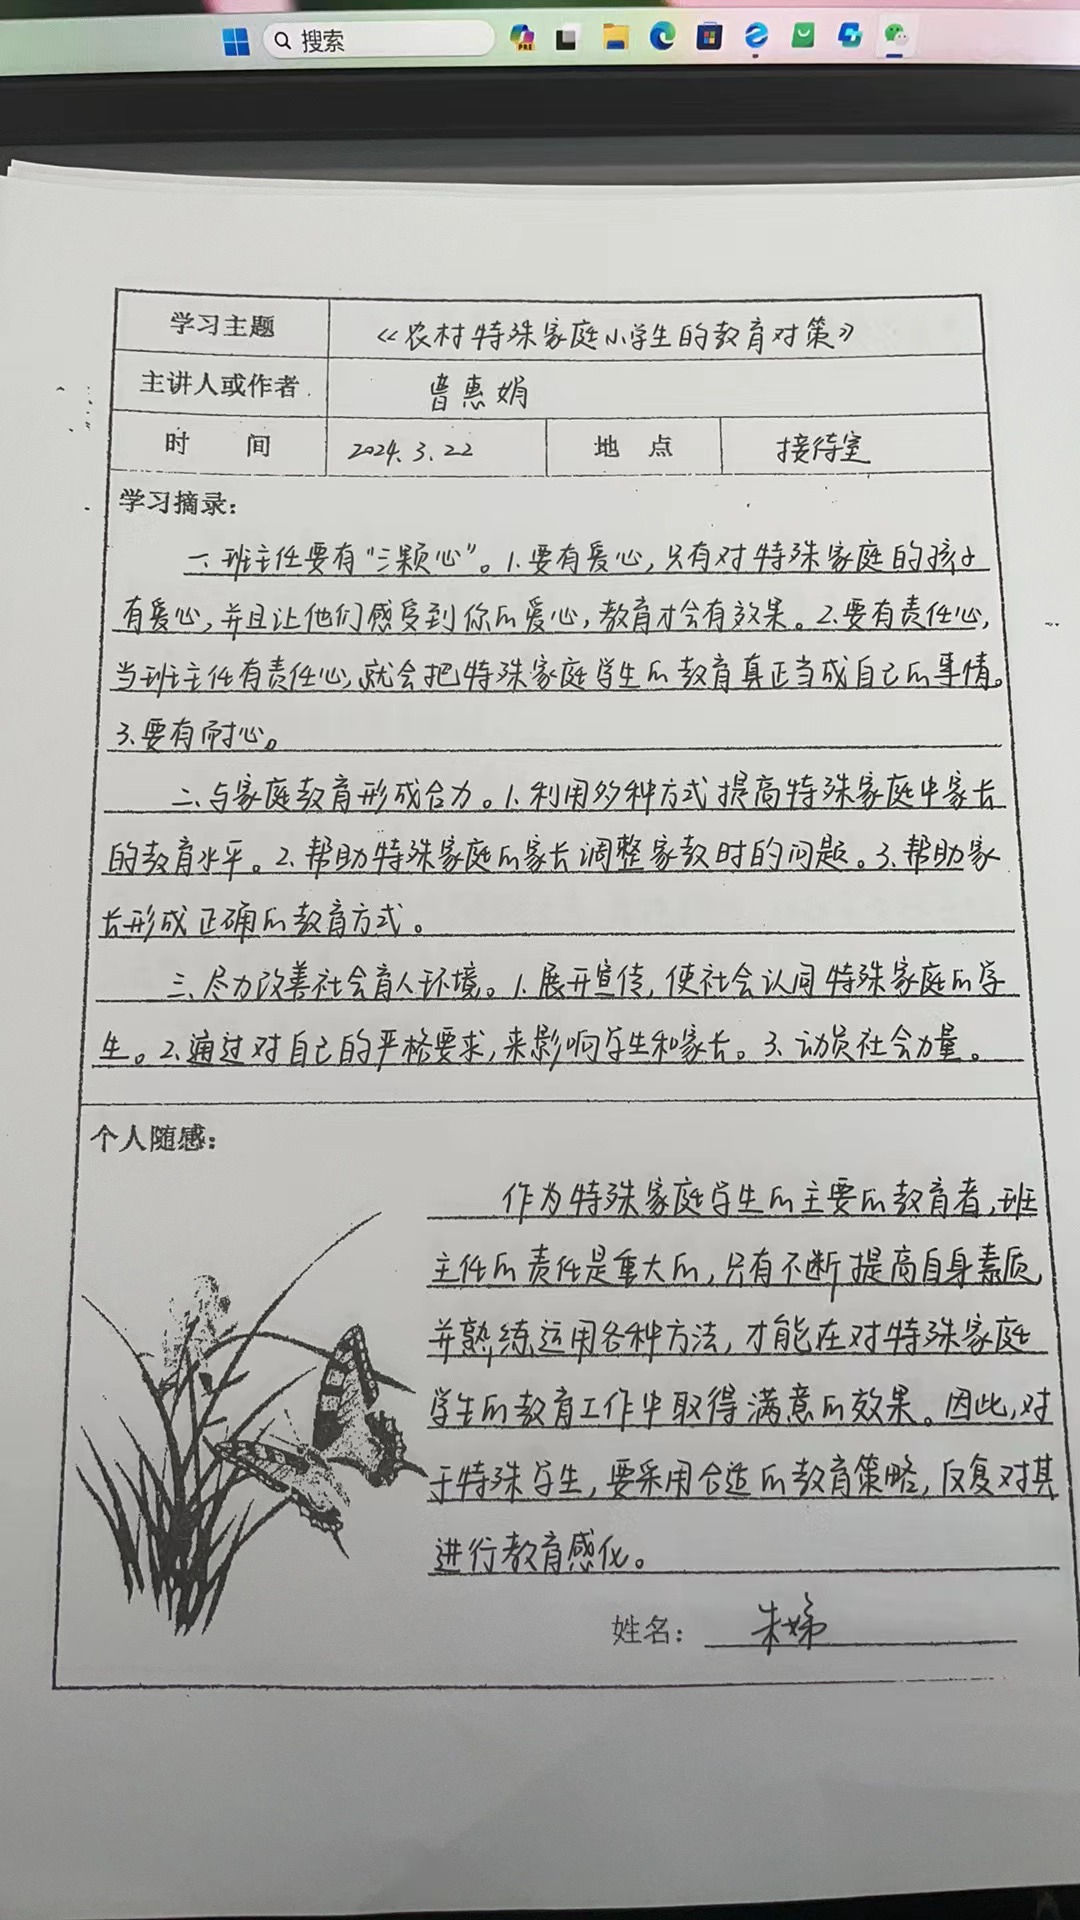 搜索
PRE
学习主题 《农村特殊家庭小学生的教育对策》
主讲人或作者 曾惠娟
时 间 2024.3.22 地 点 接待室
学习摘录:
一、班主任要有“三颗心”。1.要有爱心,只有对特殊家庭的孩子
有爱心,并且让他们感受到你的爱心,教育才会有效果。2.要有责任心,
当班主任有责任心,就会把特殊家庭学生的教育真正当成自己的事情。
3.要有耐心。
二、与家庭教育形成合力。1.利用多种方式提高特殊家庭中家长
的教育水平。2.帮助特殊家庭的家长调整家教时的问题。3.帮助家
长形成正确的教育方式。
三、尽力改善社会育人环境。1.展开宣传,使社会认同特殊家庭的学
生。2.通过对自己的严格要求,来影响学生和家长。3.动员社会力量。
个人随感:
作为特殊家庭学生的主要的教育者,班
主任的责任是重大的,只有不断提高自身素质,
并熟练运用各种方法,才能在对特殊家庭
学生的教育工作中取得满意的效果。因此,对
于特殊学生,要采用合适的教育策略,反复对其
进行教育感化。
姓名: 朱娣